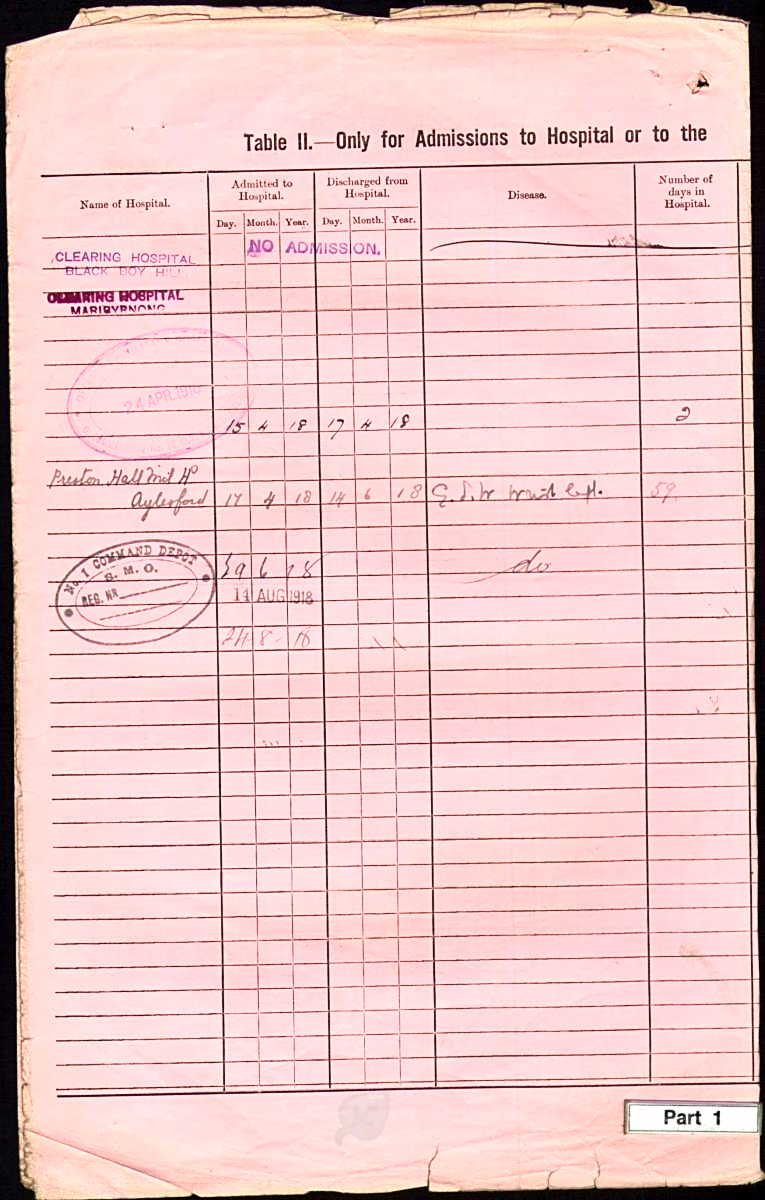 Table II.—Only for Admissions to Hospital or to the
Name of Hospital.
Admitted to Hospital.
Discharged from Hospital.
Disease.
Number of days in Hospital.
Day. Month. Year. Day. Month. Year.
CLEARING HOSPITAL NO ADMISSION.
BLACK BOY HILL
CLEARING HOSPITAL
MARIBYRNONG
24 APR 1918
15 4 18 17 4 18 2
Preston Hall Mil Hp
Aylesford 17 4 18 14 6 18 G.S.W 59
No. 1 COMMAND DEPOT
S. M. O.
REG. NR
6 18 do
14 AUG 1918
24 8 18
Part 1